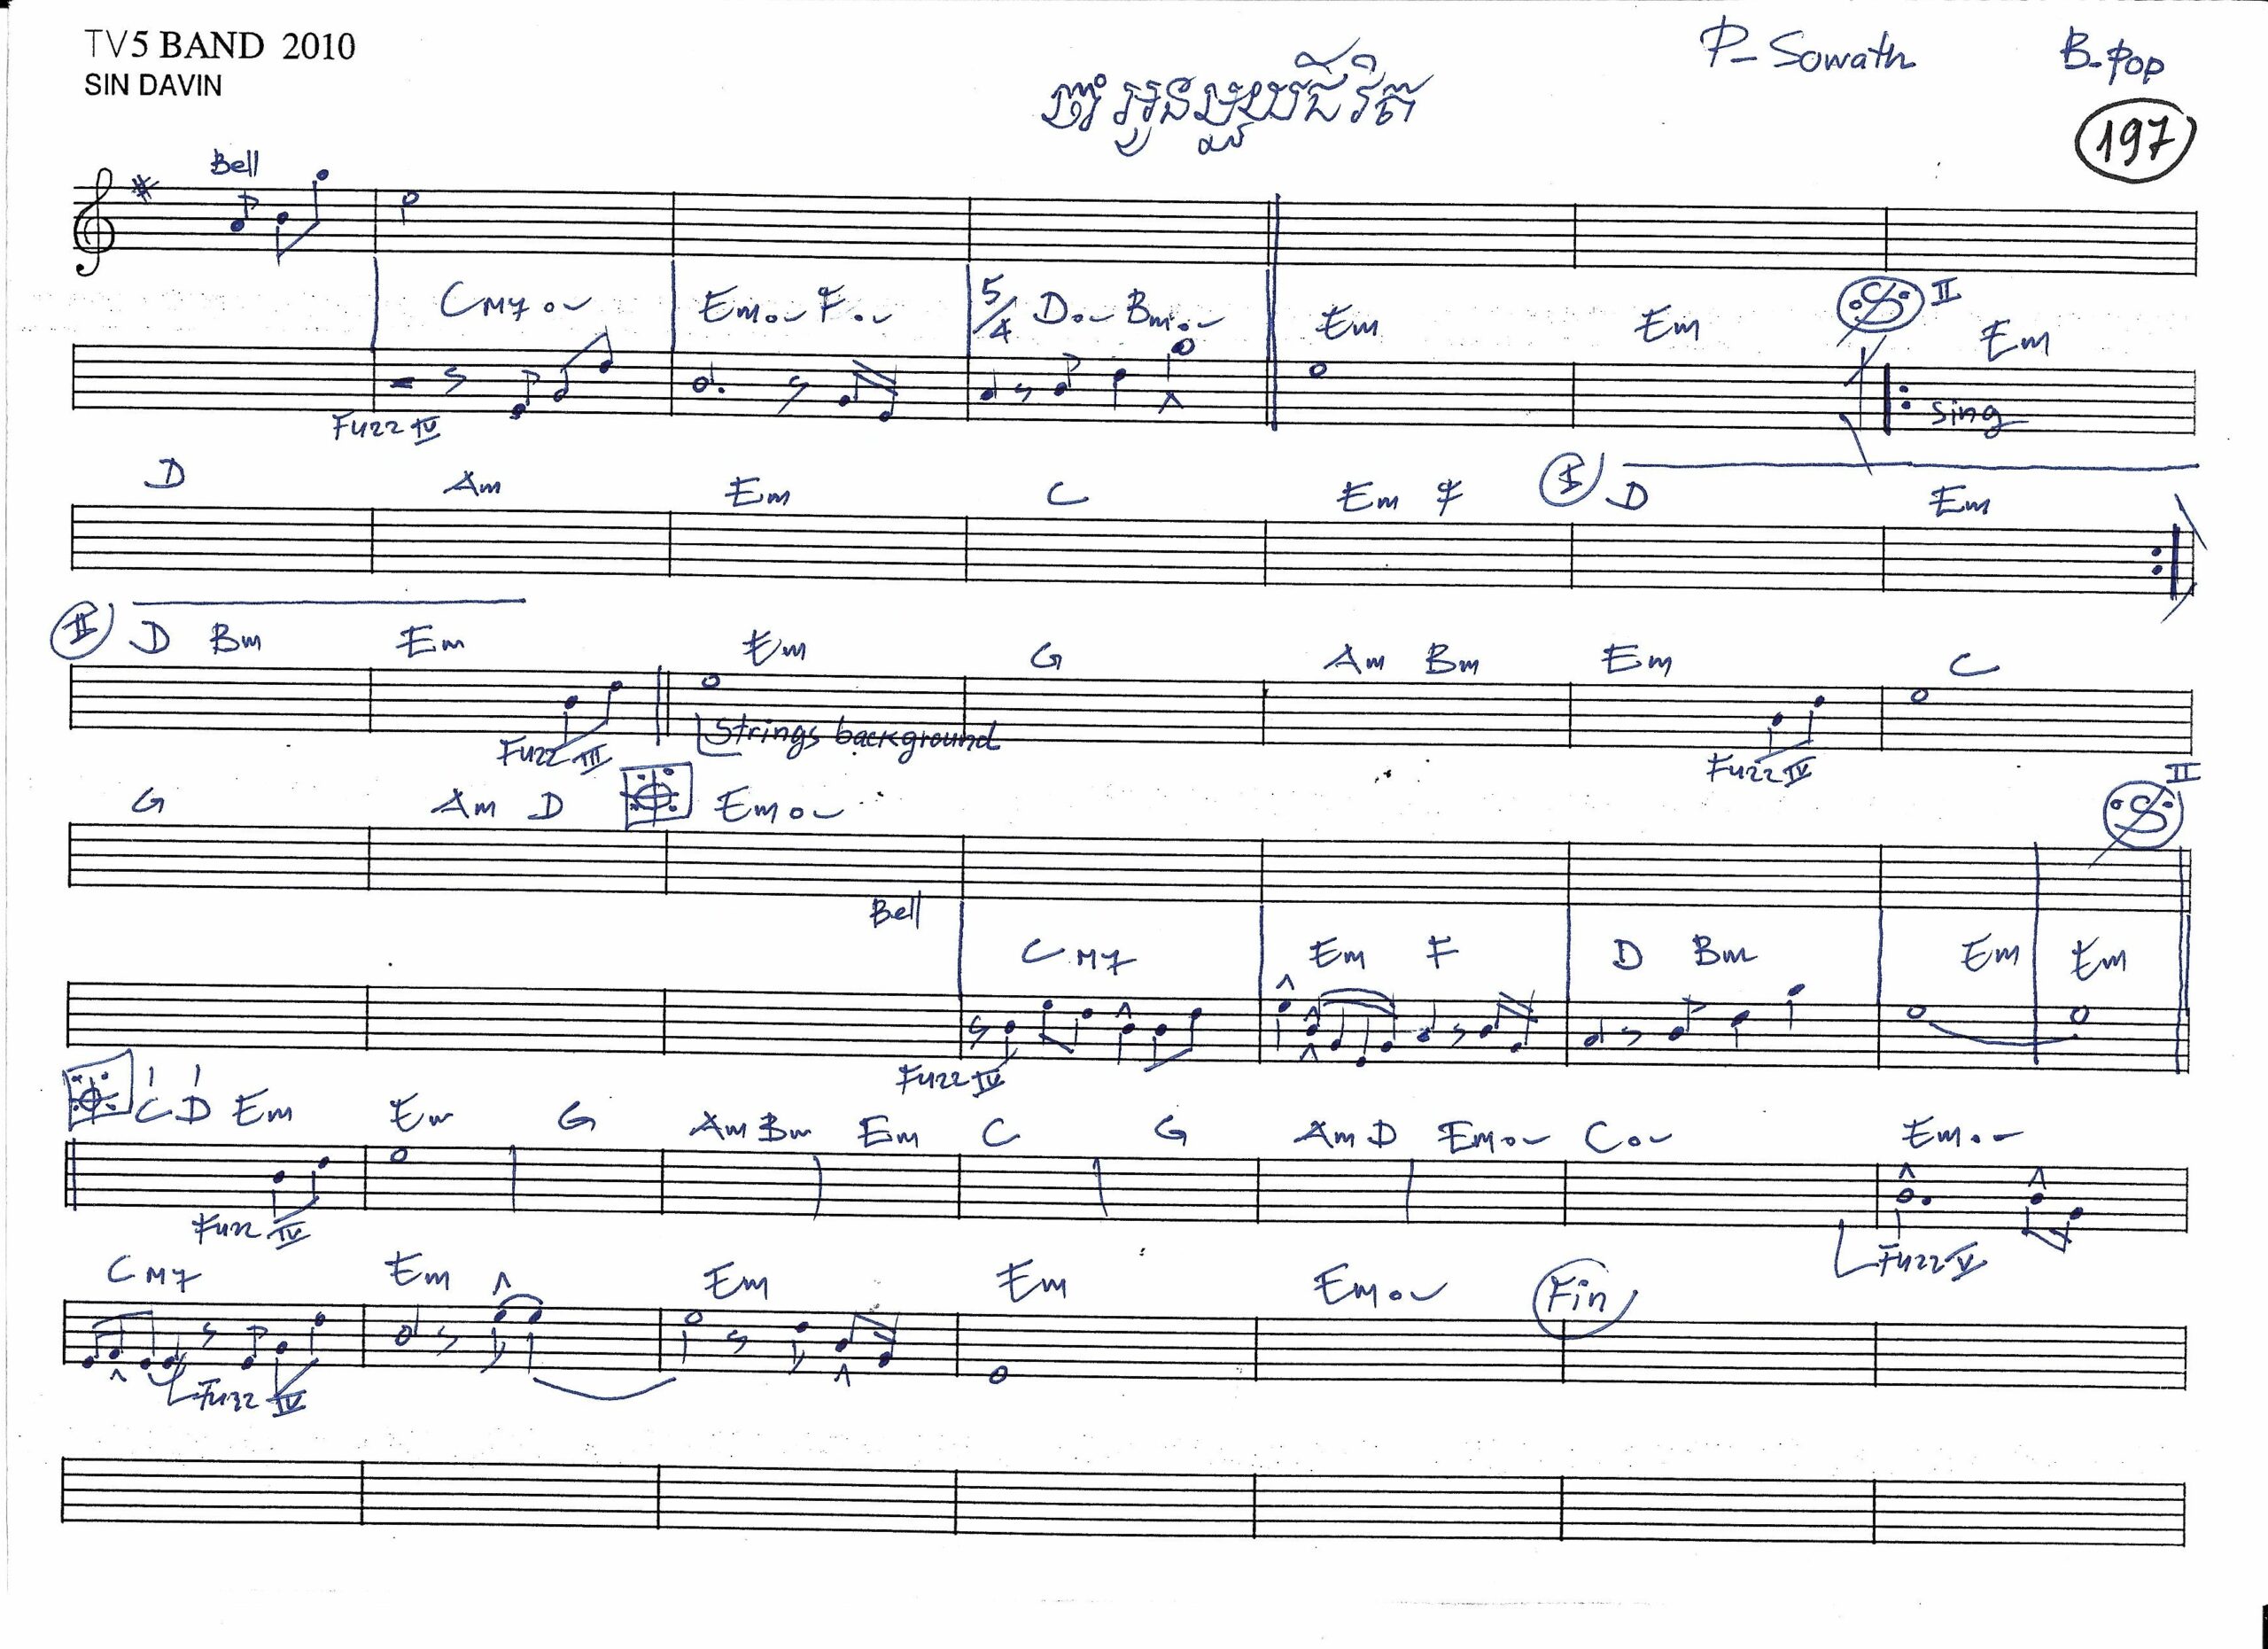 TV5 BAND 2010
SIN DAVIN
P_ Sowath
B_pop
ចាំអូនមួយជីវិត
197
Bell
CM7 Em F 5/4 D Bm Em Em II Em
Fuzz IV
Sing
D Am Em C Em F I D Em
II D Bm Em Em G Am Bm Em C
Fuzz III
Strings background
Fuzz IV
G Am D Em II
Bell
CM7 Em F D Bm Em Em
Fuzz IV
C D Em Em G Am Bm Em C G Am D Em C Em
Fuzz IV
Fuzz V
CM7 Em Em Em Em Fin
Fuzz IV